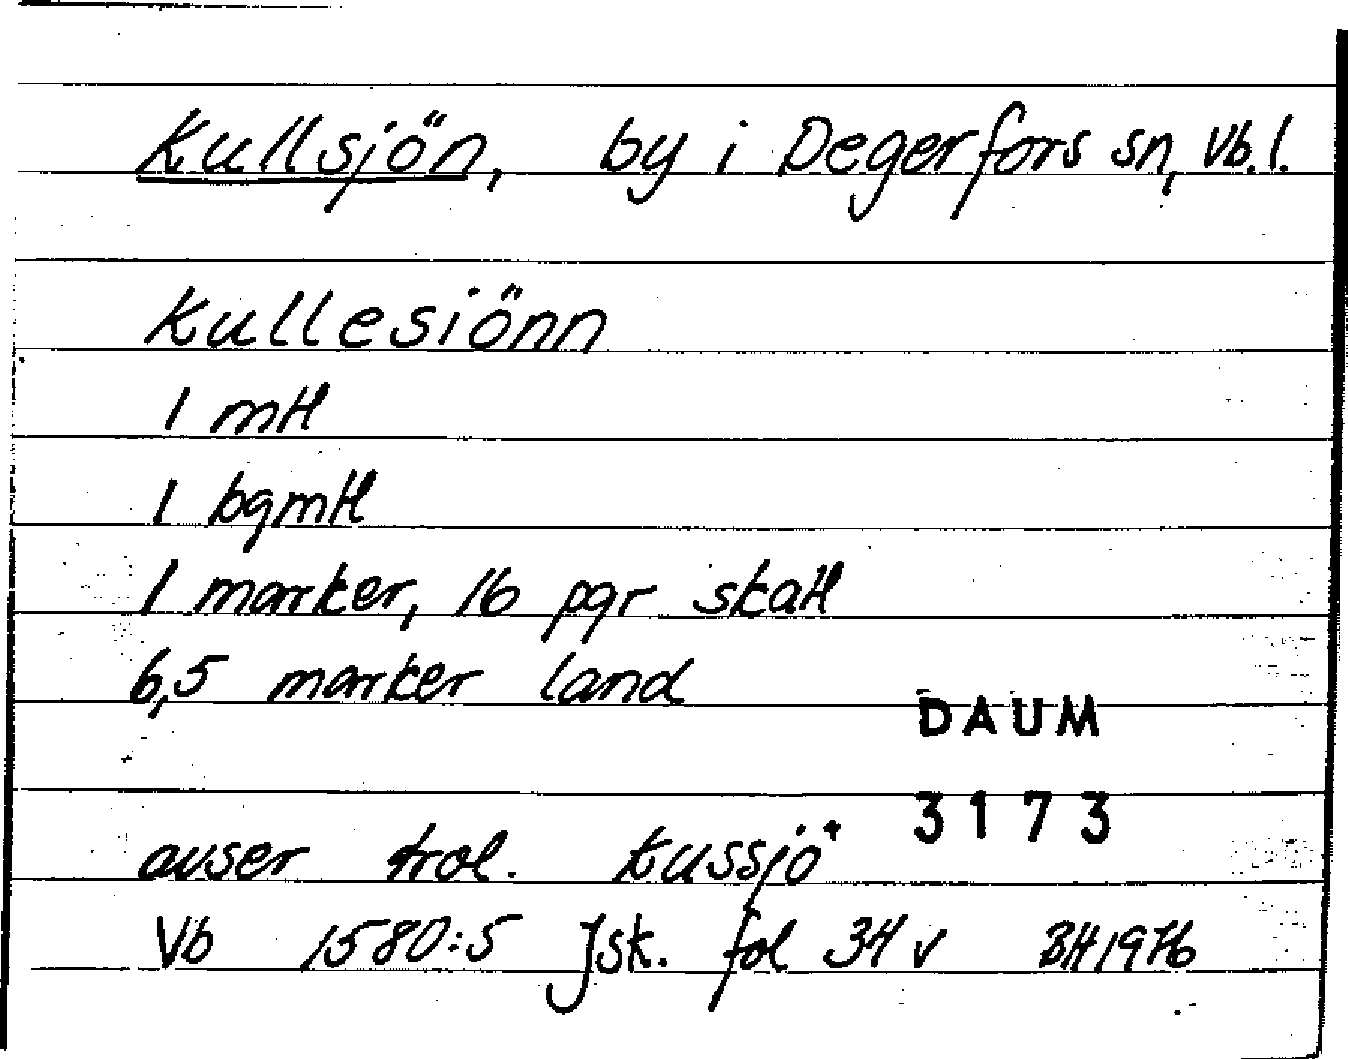 Kullsjön, by i Degerfors sn, Vb. l.
Kullesiönn
1 mtl
1 bgmtl
1 marker, 16 pgr skatt
6,5 marker land
DAUM
3173
avser trol. Kussjö
Vb 1580:5 Jsk. fol 34 v BH 1976